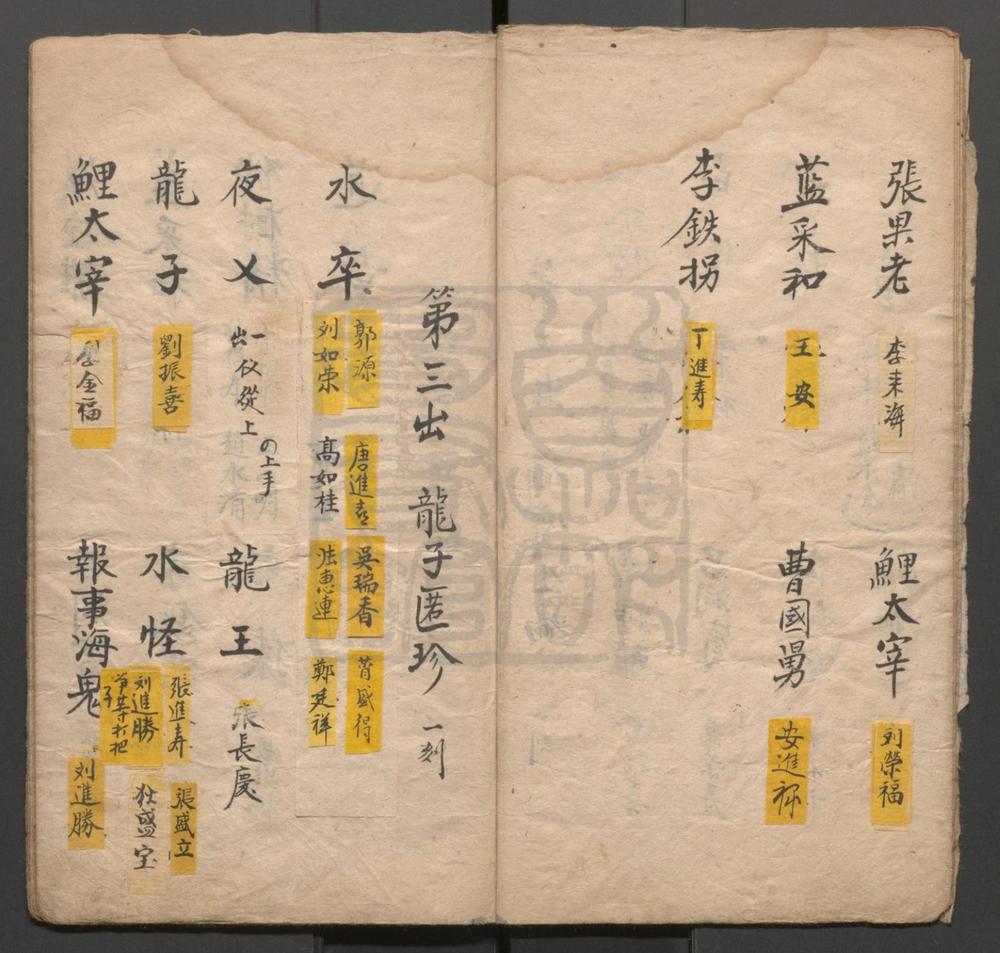 張果老 李来海 鯉太宰 刘榮福
藍采和 王安 曹國舅 安進禄
李鉄拐 丁進寿
第三出 龍子匿珍 一刻
水卒
郭源 唐進喜 吳瑞香 盛得
刘如荣 高如桂 惠連 鄭廷祥
夜乂 一仪從上 出 の上手 龍王 張長慶
龍子 劉振喜 水怪
張進寿 張盛立
刘進勝 狄盛宝
打把子
鯉太宰 金福 報事海鬼 刘進勝